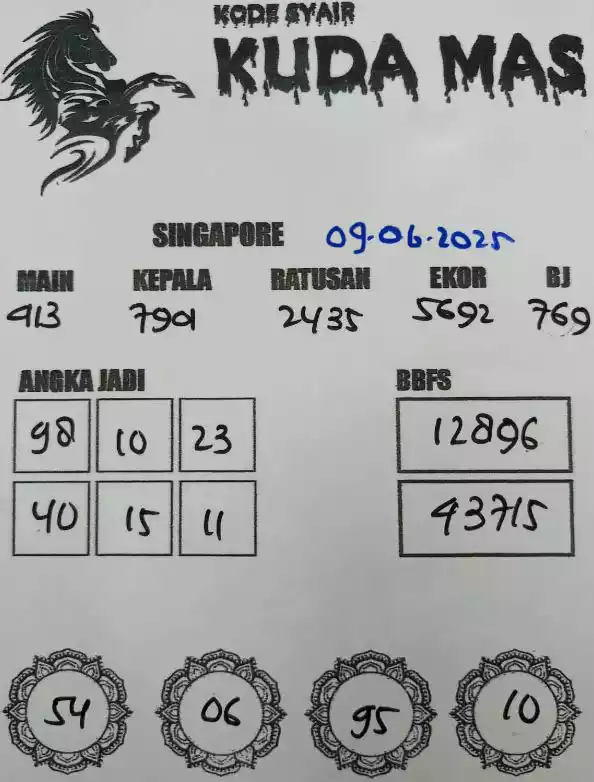 KODE SYAIR
KUDA MAS
SINGAPORE 09-06-2025
MAIN KEPALA RATUSAN EKOR BJ
913 7901 2435 5692 769
ANGKA JADI BBFS
98 10 23 12896
40 15 11 43715
54 06 95 10